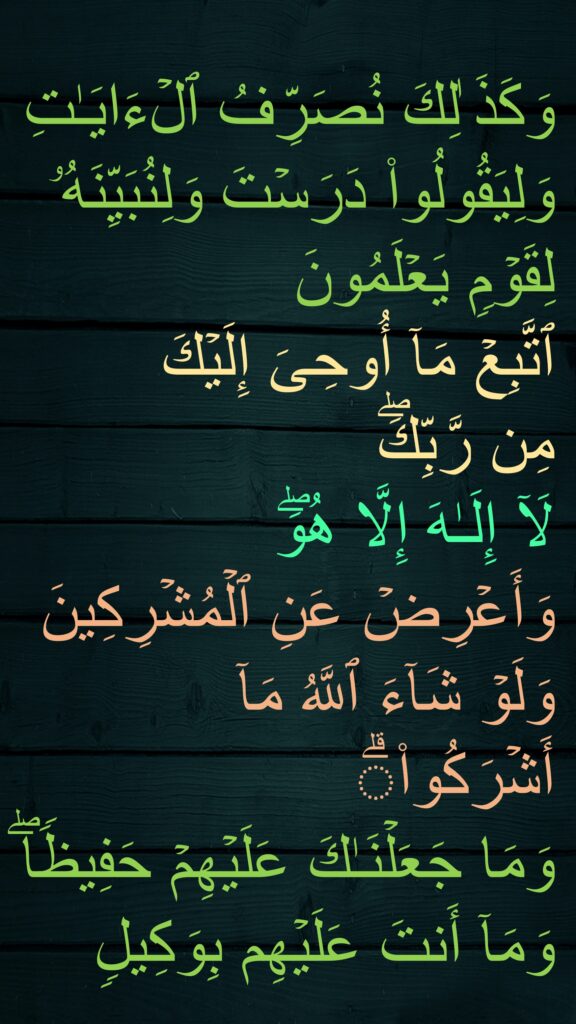 وَكَذَٰلِكَ نُصَرِّفُ ٱلْءَايَـٰتِ
وَلِيَقُولُوا۟ دَرَسْتَ وَلِنُبَيِّنَهُۥ
لِقَوْمٍ يَعْلَمُونَ
ٱتَّبِعْ مَآ أُوحِىَ إِلَيْكَ
مِن رَّبِّكَ ۖ
لَآ إِلَـٰهَ إِلَّا هُوَ ۖ
وَأَعْرِضْ عَنِ ٱلْمُشْرِكِينَ
وَلَوْ شَآءَ ٱللَّهُ مَآ
أَشْرَكُوا۟ ۗ
وَمَا جَعَلْنَـٰكَ عَلَيْهِمْ حَفِيظًا ۖ
وَمَآ أَنتَ عَلَيْهِم بِوَكِيلٍ